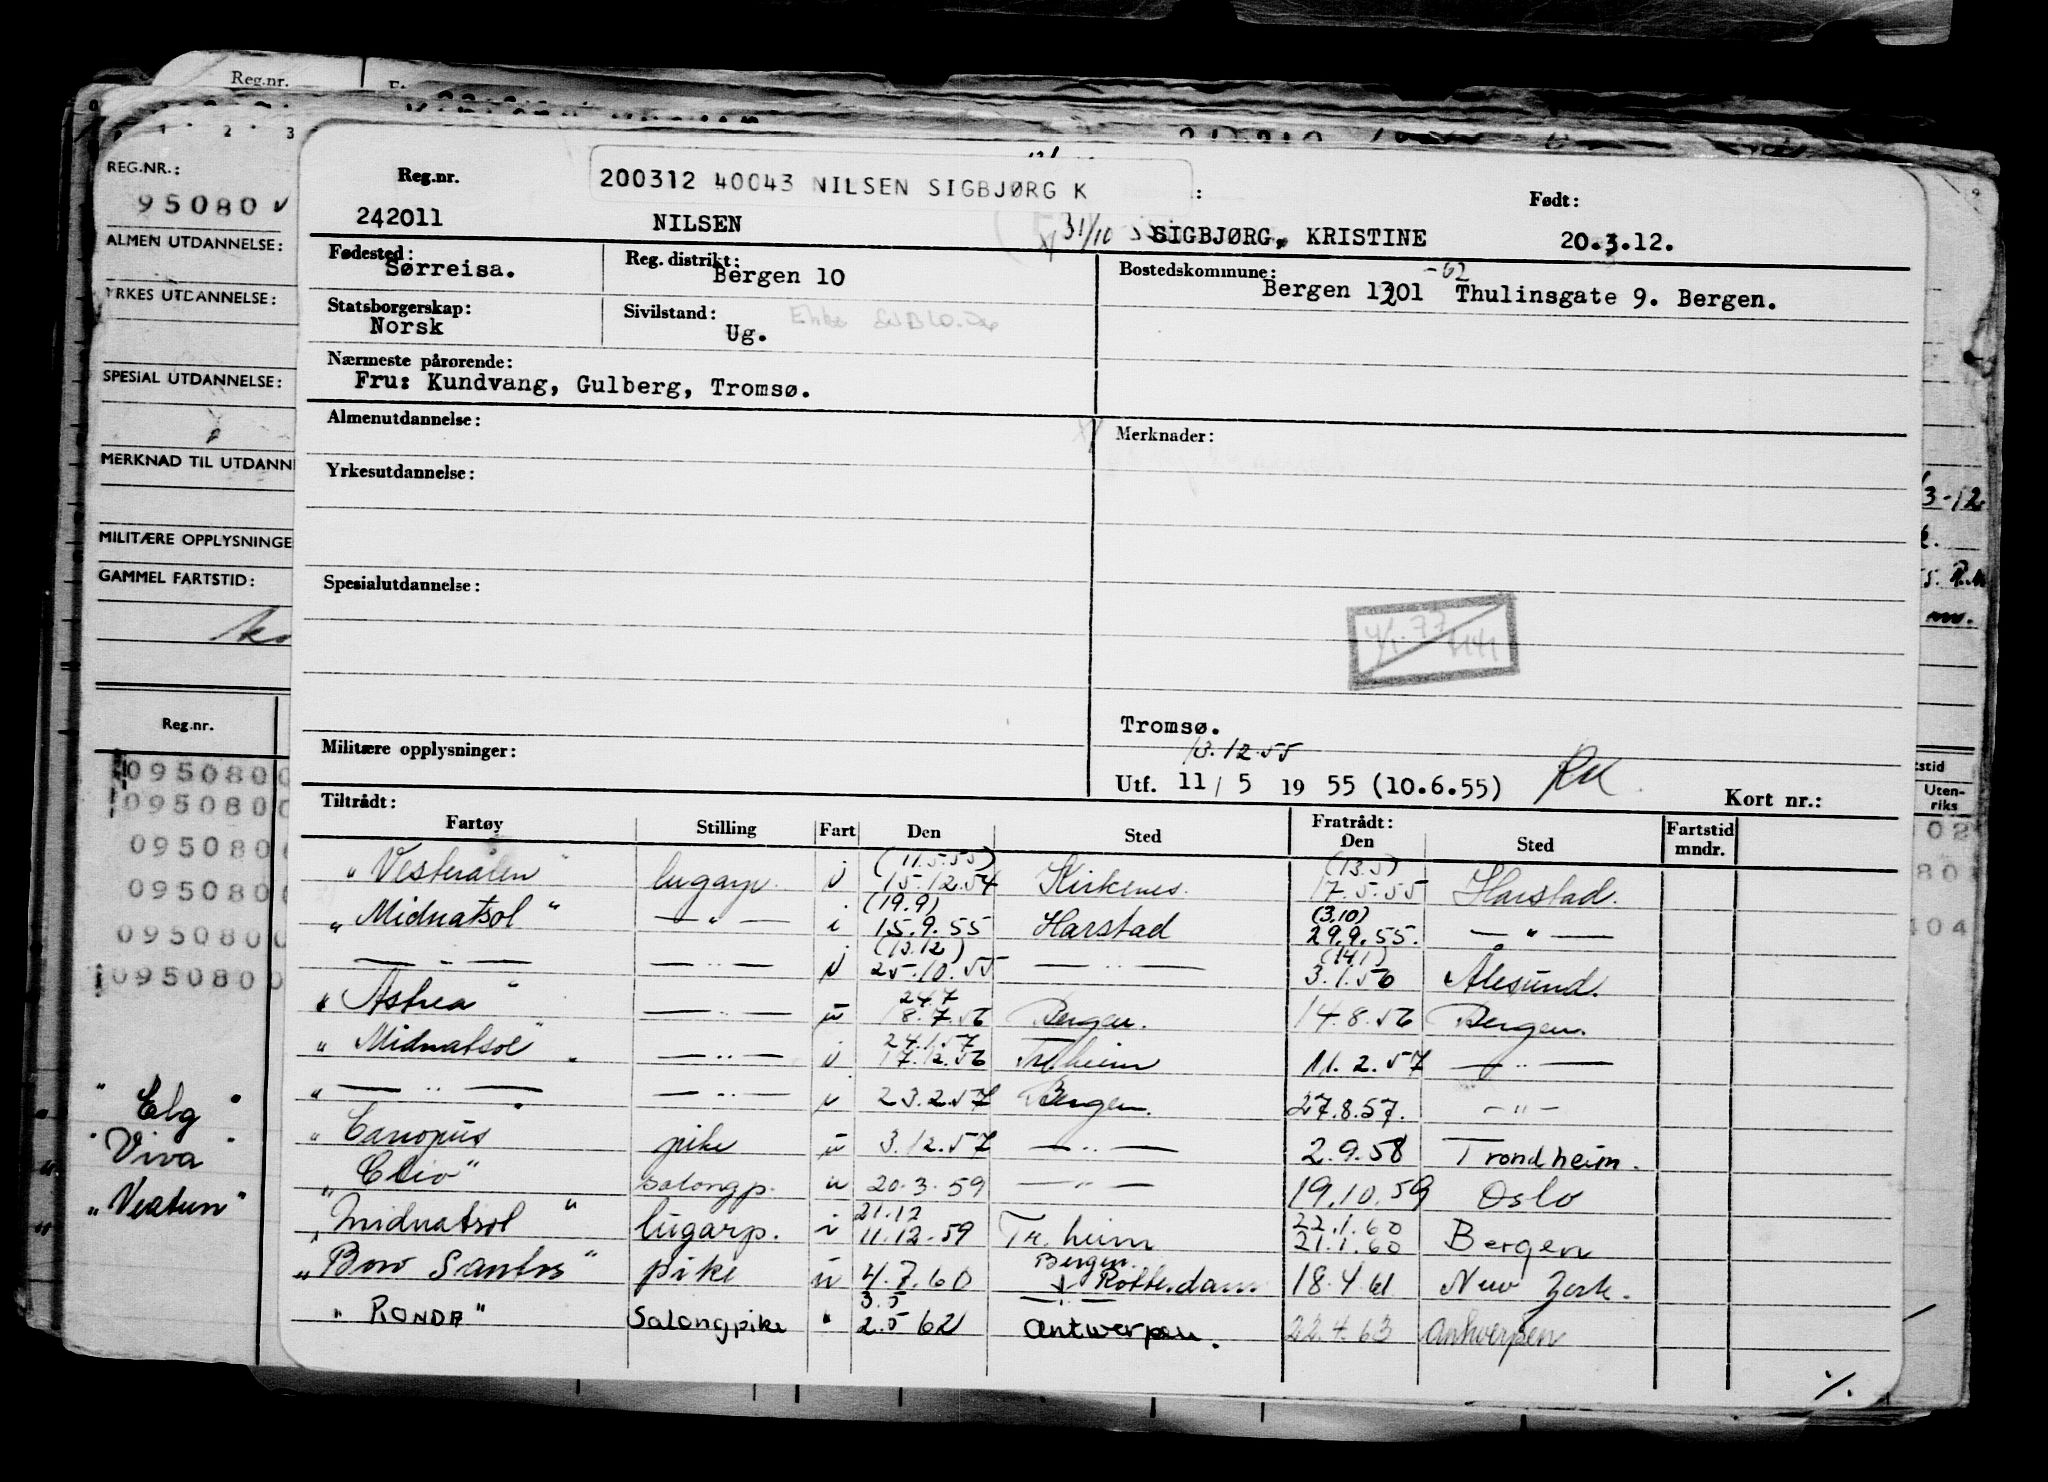 Reg.nr.
0 1 2 3
REG.NR.:
95080
ALMEN UTDANNELSE:
YRKES UTDANNELSE:
SPESIAL UTDANNELSE:
MERKNAD TIL UTDANN
MILITÆRE OPPLYSNINGE
GAMMEL FARTSTID:
Reg.nr.
0950800
0950800
095080
095080
0950800
0950800
" Elg "
" Viva "
Reg.nr.
200312 40043 NILSEN SIGBJØRG K
:
Født:
242011 NILSEN 31/10 55 SIGBJØRG, KRISTINE 20.3.12.
Fødested: Sørreisa.
Reg. distrikt: Bergen 10
Bostedskommune: -62
Bergen 1201 Thulinsgate 9. Bergen.
Statsborgerskap: Norsk
Sivilstand: Ug.
Nærmeste pårørende:
Fru: Kundvang, Gulberg, Tromsø.
Almenutdannelse:
Merknader:
Yrkesutdannelse:
Spesialutdannelse:
4/1.77
Tromsø.
Militære opplysninger:
13.12.55
Utf. 11/5 1955 (10.6.55) RM
Kort nr.:
Tiltrådt:
Fartøy Stilling Fart Den Sted Fratrådt: Den Sted Fartstid mndr.
(11.5.55) (13.5)
"Vesterålen" lugarp. i 15.12.54 Kirkenes. 17.5.55 Harstad.
(19.9) (3.10)
"Midnatsol" — " — i 15.9.55 Harstad 29.9.55. — " —
(13.12) (14.1)
— " — — " — i 25.10.55 — " — 3.1.56 Ålesund.
24.7
"Astrea" — " — u 18.7.56 Bergen. 14.8.56 Bergen.
24.1.57
"Midnatsol" — " — i 17.12.56 Tr.heim 11.2.57 — " —
" — " — — " — i 23.2.57 Bergen. 27.8.57. — " —
"Canopus" pike u 3.12.57 — " — 2.9.58 Trondheim.
"Clio" salongp. u 20.3.59 — " — 19.10.59 Oslo
21.12 22.1.60
"Midnatsol" lugarp. i 11.12.59 Tr.heim 21.1.60 Bergen
Bergen.
"Bow Santos" pike u 4.7.60 Rotterdam 18.4.61 New York.
3.5 — " —
"RONDA" Salongpike " 2.5 62 Antwerpen. 22.4.63 Antwerpen
%.
/3-12
tstid
Uten-
riks
02
80
404